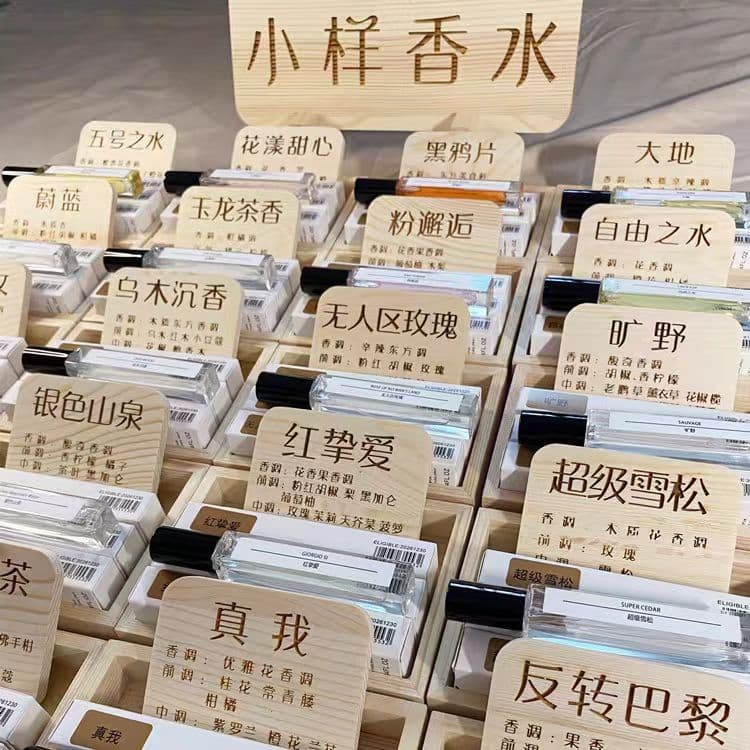 小样香水
五号之水
花漾甜心
黑鸦片
大地
香调：木质辛辣调
蔚蓝
香调：木质香
前调：粉红胡椒 柑橘
玉龙茶香
粉邂逅
香调：花香果香调
前调：葡萄柚 木梨
自由之水
香调：花香调
乌木沉香
香调：木质东方香调
前调：乌木 红木 小豆蔻
无人区玫瑰
香调：辛辣东方调
前调：粉红胡椒 玫瑰
旷野
香调：馥奇香调
前调：胡椒.香柠檬
中调：老鹳草 薰衣草 花椒
旷野
SAUVAGE
旷野
ROSE OF NO MAN'S LAND
无人区玫瑰
银色山泉
香调：馥奇香调
前调：香柠檬 橘子
中调：茶叶 黑加仑
红挚爱
香调：花香果香调
前调：粉红胡椒 梨 黑加仑
葡萄柚
中调：玫瑰 茉莉 天芥菜 菠萝
红挚爱
GIORGIO SI
红挚爱
ELIGIBLE:20261230
超级雪松
香调：木质花香调
前调：玫瑰
中调：雪松
超级雪松
SUPER CEDAR
超级雪松
茶
佛手柑
蔻
真我
香调：优雅花香调
前调：桂花 常青藤
柑橘
中调：紫罗兰 橙花 兰花
真我
反转巴黎
香调：果香
前调：